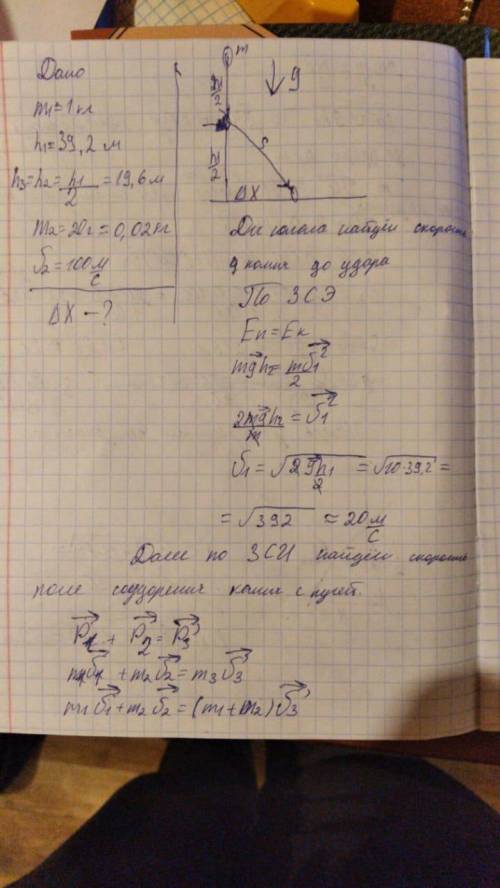 Дано
m1 = 1 кг
h1 = 39,2 м
h3 = h2 = h1/2 = 19,6 м
m2 = 20 г = 0,02 кг
v2 = 100 м/с
ΔX - ?
m
h1/2
g
S
h1/2
ΔX
найдём скорость
камня до удара
По ЗСЭ
Eп = Eк
mgh2 = mv1²/2
2mgh2/m = v1²
v1 = √(2gh1/2) = √(10·39,2) =
= √392 ≈ 20 м/с
Далее по ЗСИ найдём скорость
после соударения камня с пулей.
P1 + P2 = P3
m1v1 + m2v2 = m3v3
m1v1 + m2v2 = (m1 + m2)v3